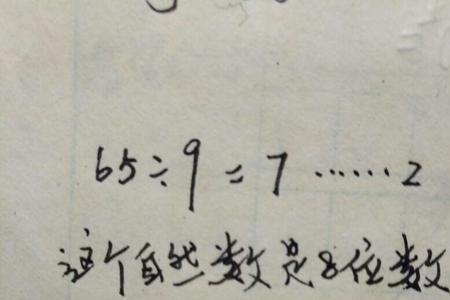 65÷9=7……2
这个自然数是8位数